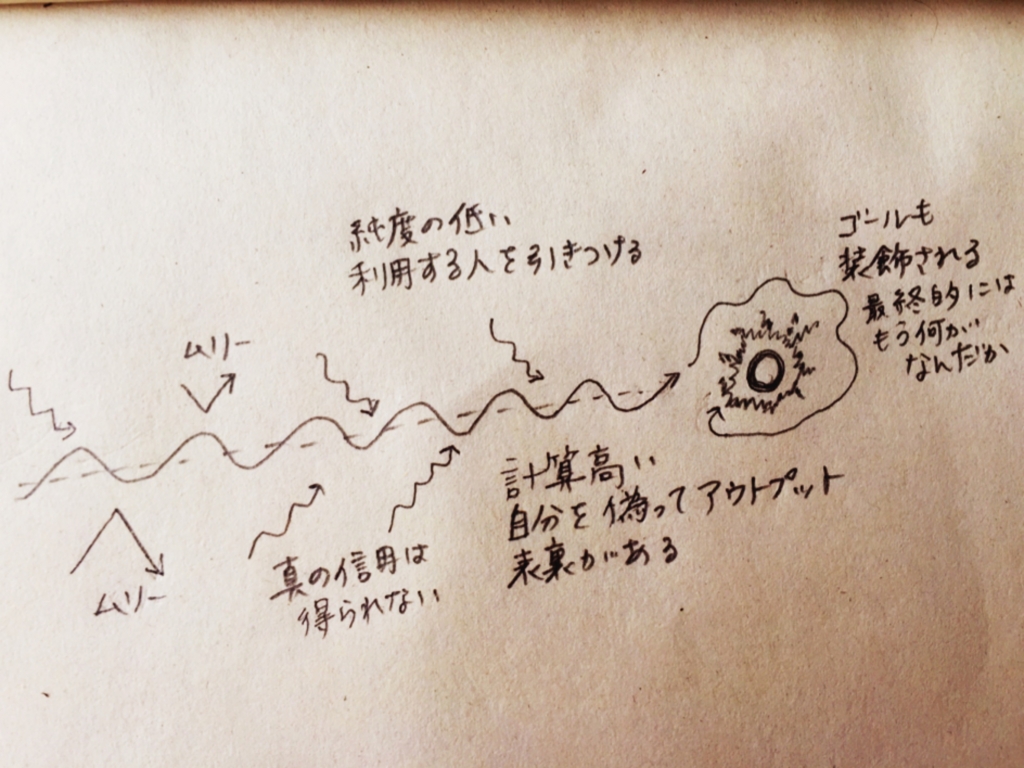 純度の低い
利用する人を引きつける
ゴールも
装飾される
最終的には
もう何が
なんだか
ムリー
ムリー
真の信用は
得られない
計算高い
自分を偽ってアウトプット
表裏がある